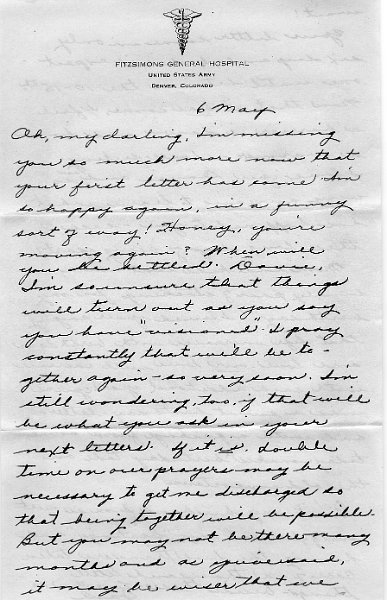 FITZSIMONS GENERAL HOSPITAL
UNITED STATES ARMY
DENVER, COLORADO
6 May
Oh, my darling, I'm missing
you so much more now that
your first letter has come. I'm
so happy again, in a funny
sort of way! Honey, you're
moving again? When will
you be settled. Davie,
I'm so unsure that things
will turn out as you say
you have "visioned". I pray
constantly that we'll be to-
gether again - so very soon. I'm
still wondering, too, if that will
be what you ask in your
next letters. If it is, double
time on our prayers may be
necessary to get me discharged so
that being together will be possible.
But you may not be there many
months and as you've said,
it may be wiser that we